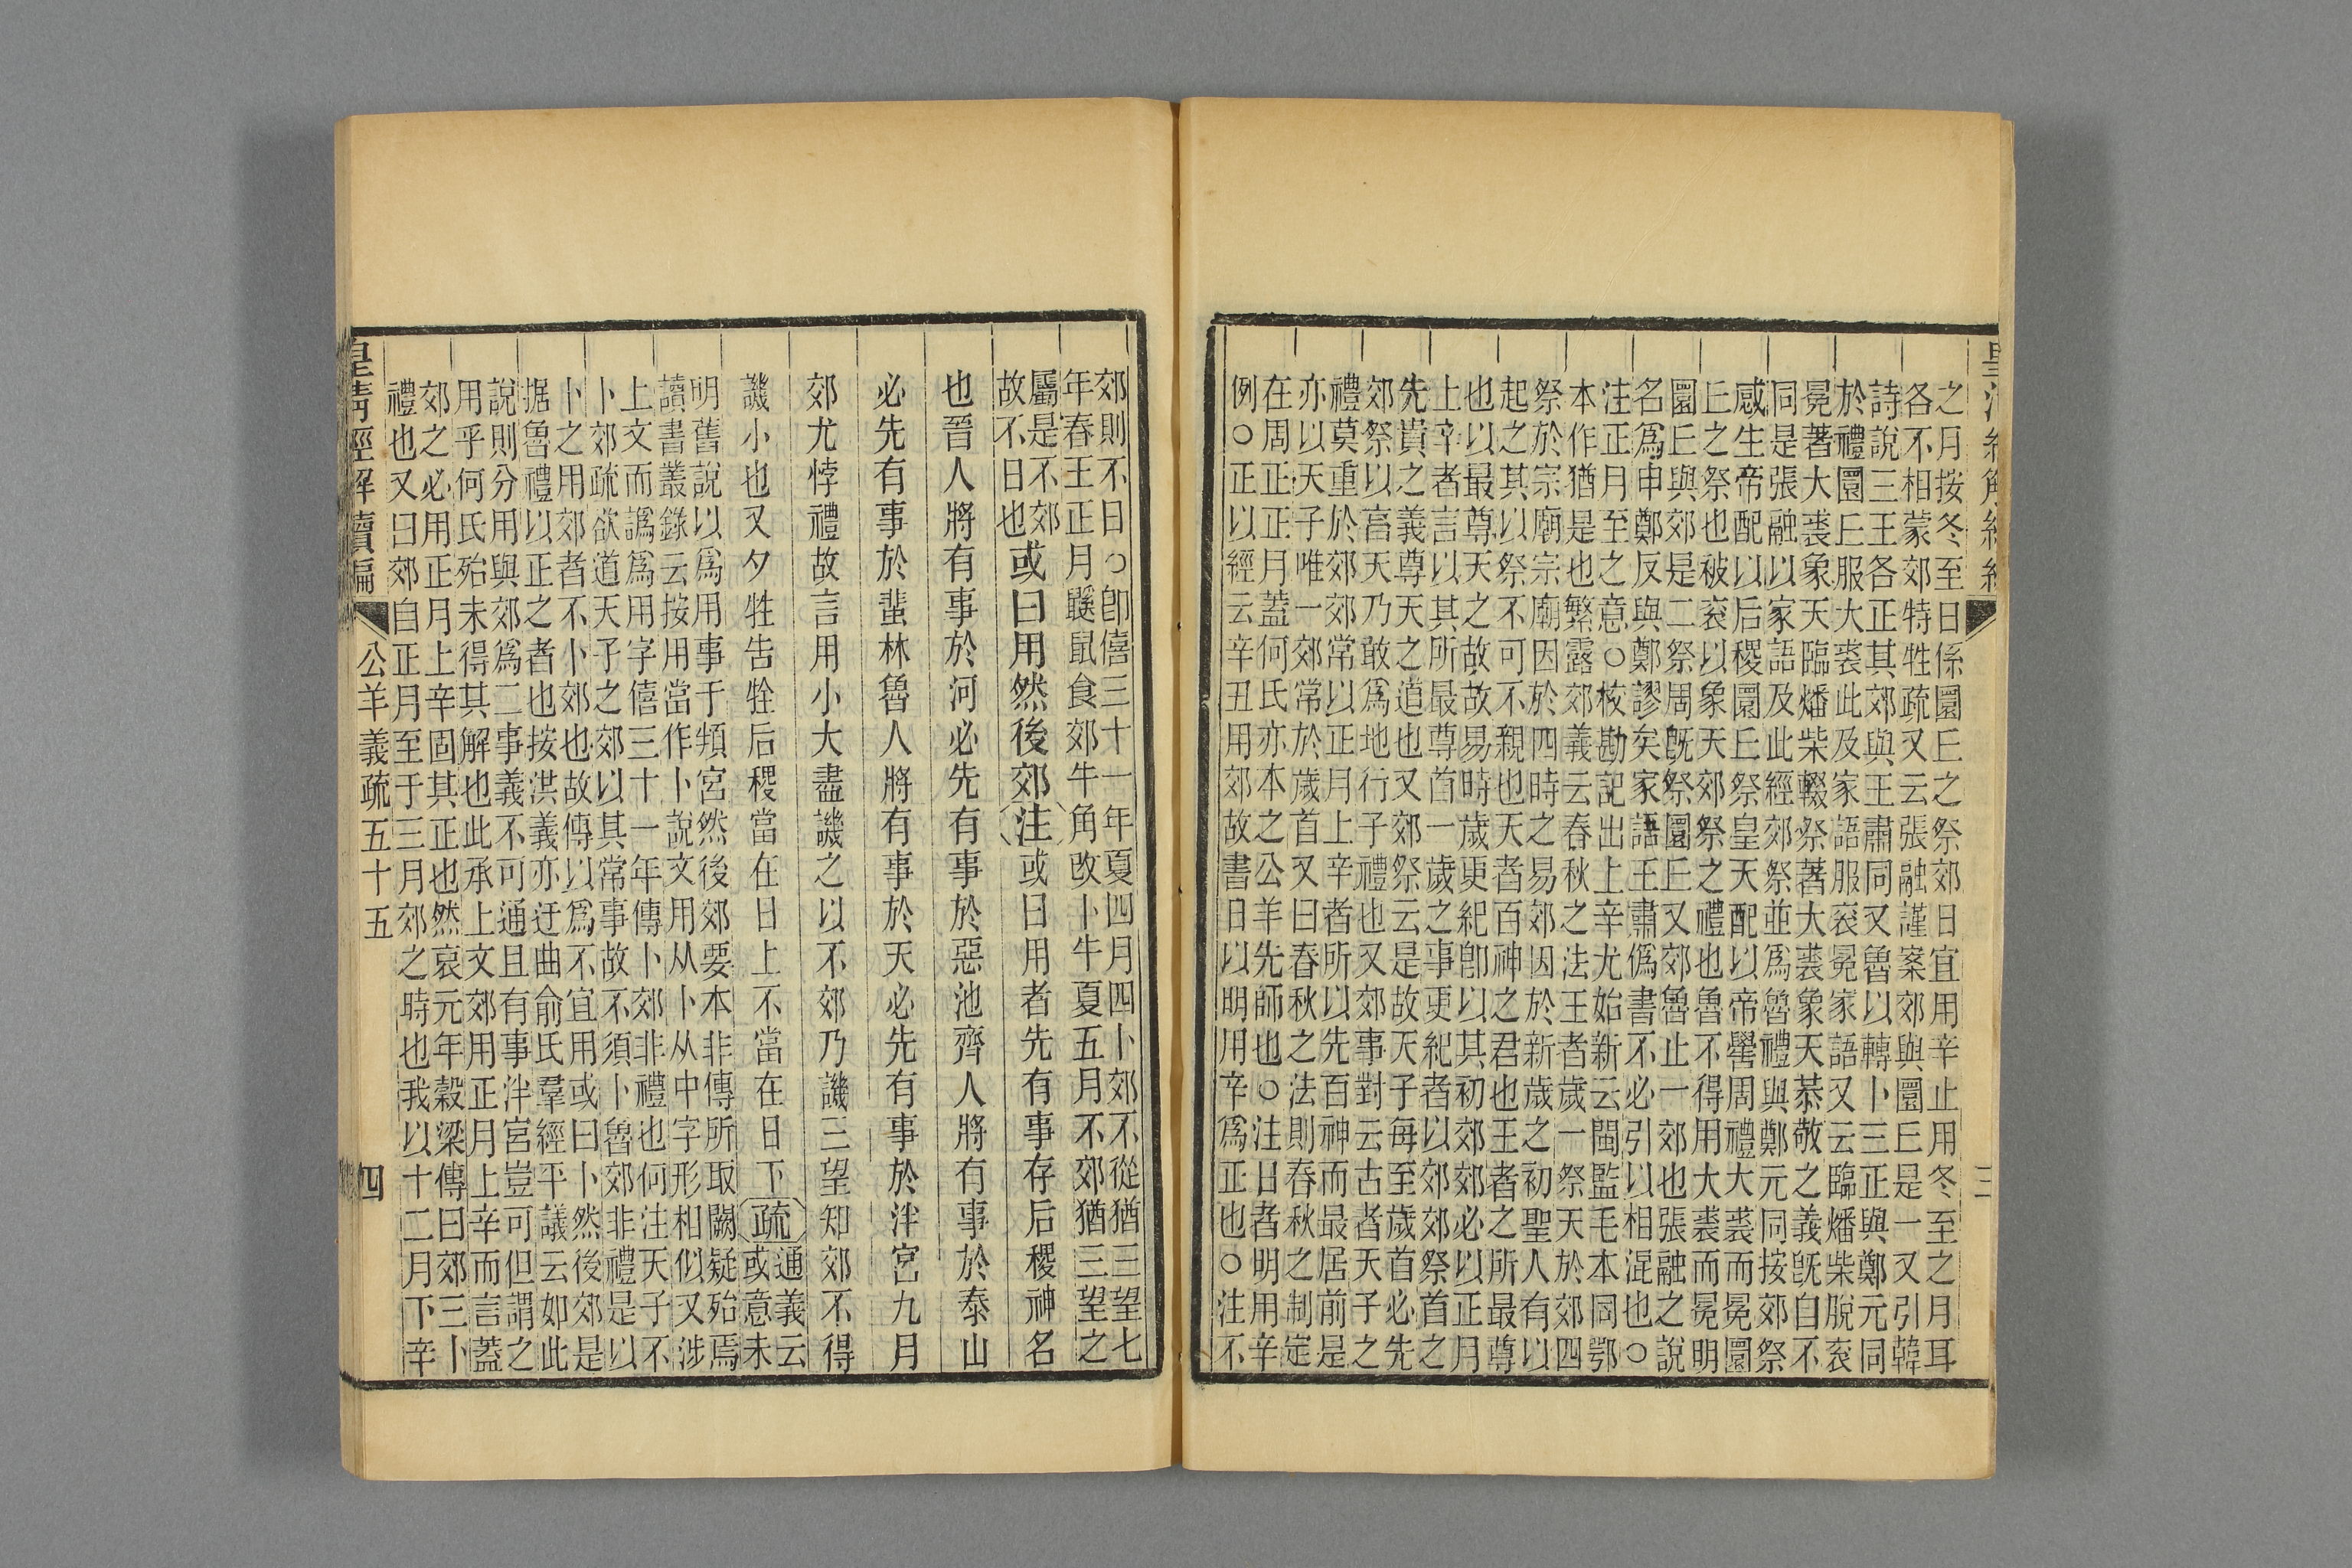 之月按冬至日係圜丘之祭郊日宜用辛止用冬至之月耳
各不相蒙郊特牲疏又云張融謹案郊與圜丘是一又引韓
詩說三王各正其郊與王肅同又魯以轉卜三正與鄭元同
於禮圜丘服大裘此及家語服袞冕家語又云臨燔柴脫袞
冕著大裘象天臨燔柴輟祭著大裘象天恭敬之義旣自不
同是張融以家語及此經郊祭並爲魯禮與鄭元同按郊祭
感生帝配以后稷圜丘祭皇天配以帝嚳周禮大裘而冕圜
丘之祭也被袞以象天郊祭之禮也魯不得用大裘而冕明
圜丘與郊是二祭周旣祭圜丘又郊魯止一郊也張融之說
名爲申鄭反與鄭謬矣家語王肅僞書不必引以相混也○
注正月至之意○校勘記出上辛尤始新云閩監毛本同鄂
本作猶是也繁露郊義云春秋之法王者歲一祭天於郊四
祭於宗廟宗廟因於四時之易郊因於新歲之初聖人有以
起之其以祭不可不親也天者百神之君也王者之所最尊
也以最尊天之故故易時歲更紀卽以其初郊郊必以正月
上辛者言以其所最尊首一歲之事更紀者以郊郊祭首之
先貴之義尊天之道也又郊祭云是故天子每至歲首必先
郊祭以高天乃敢爲地行子禮也又郊事對云古者天子之
禮莫重於郊郊常以正月上辛者所以先百神而最居前是
亦以天子唯一郊常於歲首又曰春秋之法則春秋之制定
在周正正月蓋何氏亦本之公羊先師也○注日者明用辛
例○正以經云辛丑用郊故書日以明用辛爲正也○注不
三
郊則不日○卽僖三十一年夏四月四卜郊不從猶三望七
年春王正月鼷鼠食郊牛角改卜牛夏五月不郊猶三望之
屬是不郊
故不日也
或曰用然後郊注或曰用者先有事存后稷神名
也晉人將有事於河必先有事於惡池齊人將有事於泰山
必先有事於蜚林魯人將有事於天必先有事於泮宮九月
郊尤悖禮故言用小大盡譏之以不郊乃譏三望知郊不得
譏小也又夕牲告牷后稷當在日上不當在日下疏通義云
或意未
明舊說以爲用事于頖宮然後郊要本非傳所取闕疑殆焉
讀書叢錄云按用當作卜說文用从卜从中字形相似又涉
上文而譌爲用字僖三十一年傳卜郊非禮也何注天子不
卜郊疏欲道天子之郊以其常事故不須卜魯郊非禮是以
卜之用郊者不卜郊也故傳以爲不宜用或曰卜然後郊是
据魯禮以正之者也按洪義亦迂曲俞氏羣經平議云如此
說則分用與郊爲二事義不可通且有事泮宮豈可但謂之
用乎何氏殆未得其解也此承上文郊用正月上辛而言蓋
郊之必用正月上辛固其正也然哀元年穀梁傳曰郊三卜
禮也又曰郊自正月至于三月郊之時也我以十二月下辛
皇清經解續編 公羊義疏五十五 四